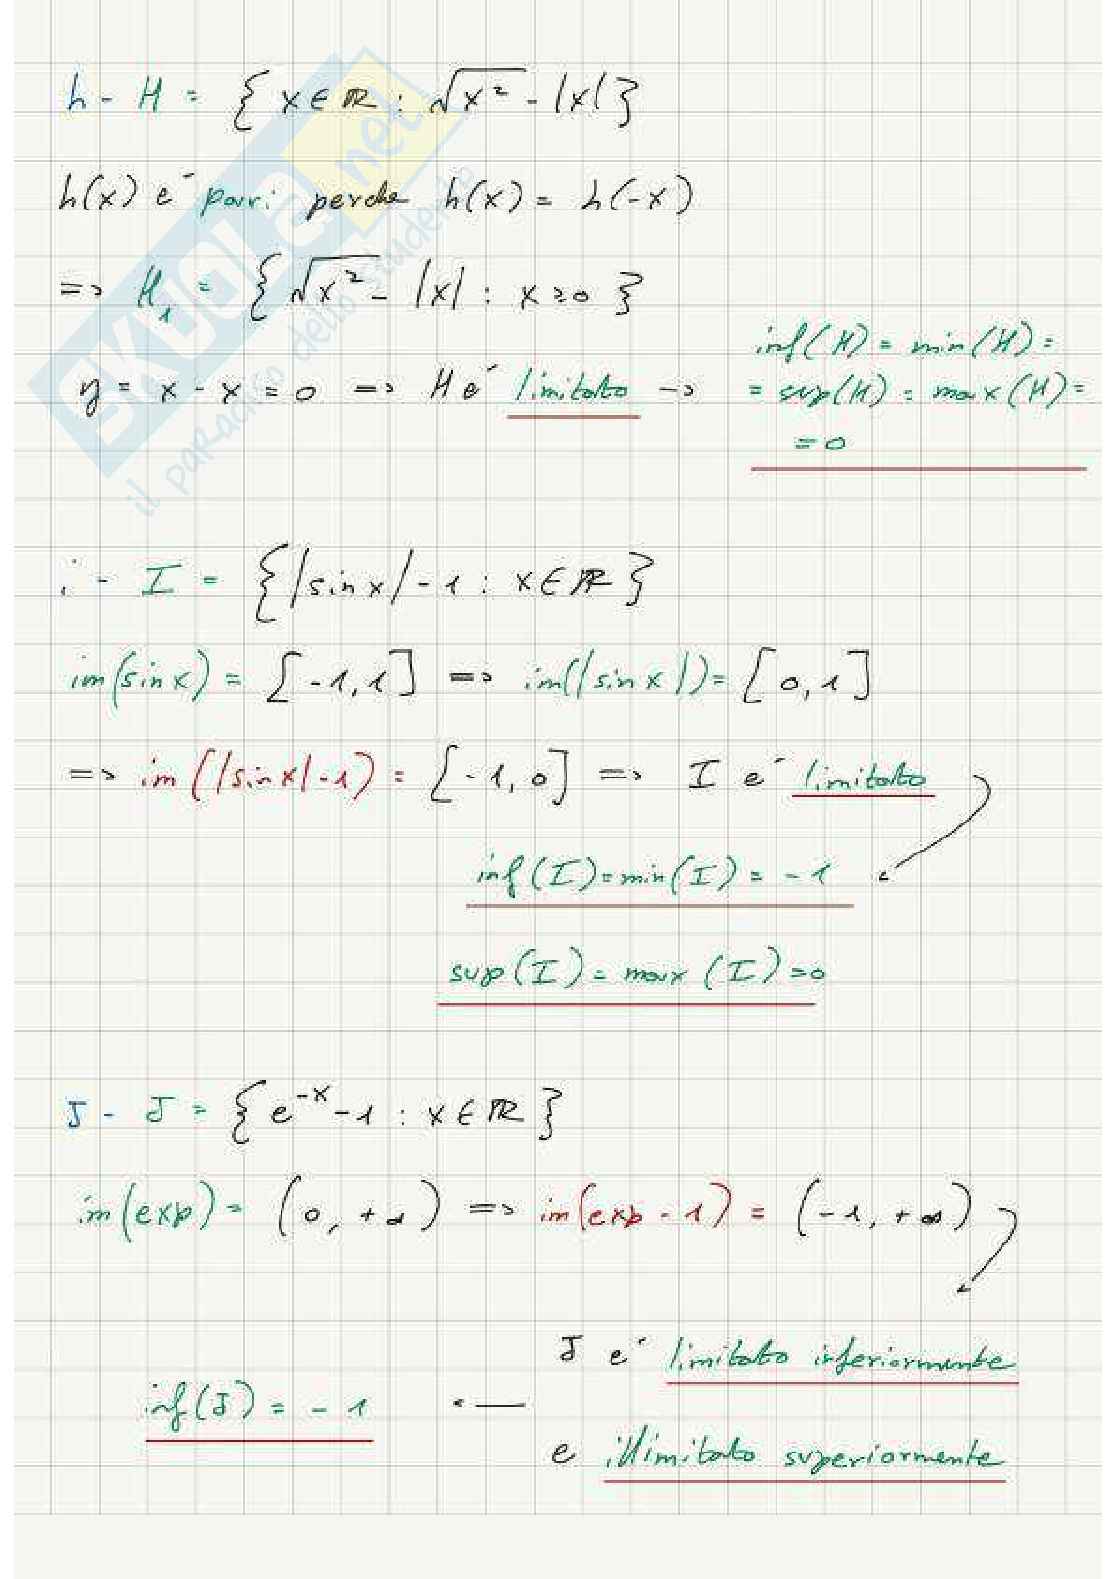 h - H = { x ∈ ℝ : √x² - |x| }
h(x) e' pari perche h(x) = h(-x)
=> H₁ = { √x² - |x| : x ≥ 0 }
y = x - x = 0 => H e' limitato -> inf(H) = min(H) =
= sup(H) = max(H) =
= 0
i - I = { |sin x| - 1 : x ∈ ℝ }
im(sin x) = [-1, 1] => im(|sin x|) = [0, 1]
=> im(|sin x| - 1) = [-1, 0] => I e' limitato
inf(I) = min(I) = -1
sup(I) = max(I) = 0
J - J = { e^{-x} - 1 : x ∈ ℝ }
im(exp) = (0, +∞) => im(exp - 1) = (-1, +∞)
J e' limitato inferiormente
inf(J) = -1 <-
e illimitato superiormente
SKUOLA.net
il paradiso dello studente